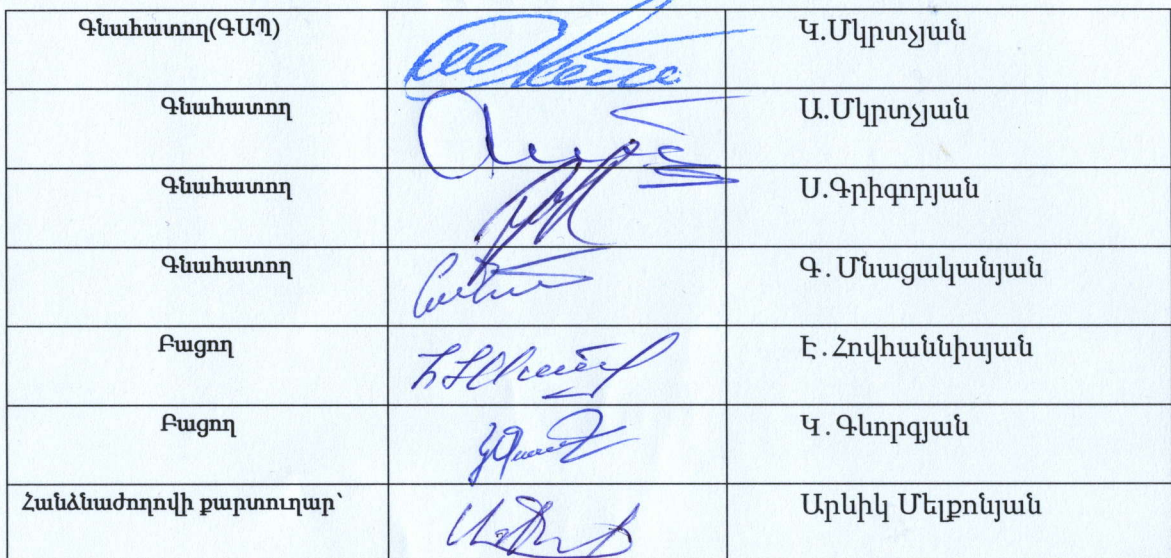 Գնահատող(ԳԱՊ) Կ.Մկրտչյան
Գնահատող Ա.Մկրտչյան
Գնահատող Ս.Գրիգորյան
Գնահատող Գ.Մնացականյան
Բացող Է.Հովհաննիսյան
Բացող Կ.Գևորգյան
Հանձնաժողովի քարտուղար՝ Արևիկ Մելքոնյան